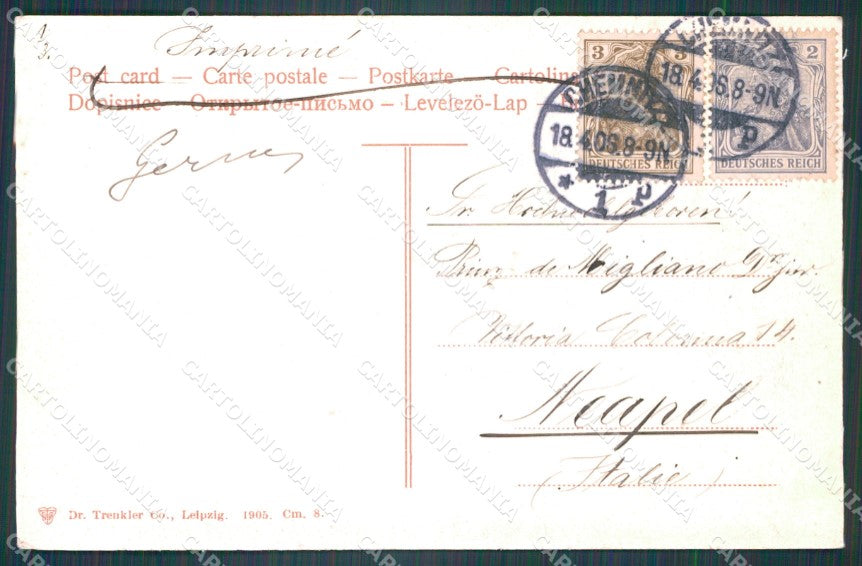 Imprimé
Post card — Carte postale — Postkarte — Cartolina
Dopisnice — Открытое-письмо — Levelezö-Lap —
3 3
DEUTSCHES REICH
2
DEUTSCHES REICH
CHEMNITZ
18.4.06.8-9N.
* 1 P
CHEMNITZ
18.4.06.8-9N.
P
Sr. Hochwohlgeboren
Prinz de Migliano Dr jur.
Vittoria Colonna 14.
Neapel
(Italie)
Dr. Trenkler Co., Leipzig. 1905. Cm. 8.
CARTOLINOMANIA